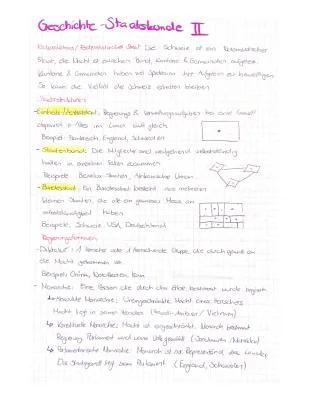 Geschichte-Staatskunde II
Föderalismus/Föderalistischer Staat: Die Schweiz ist ein föderalistischer
Staat, die Macht ist zwischen Bund, Kantone & Gemeinden aufgeteilt.
Kantone & Gemeinden haben viel Spielraum ihre Aufgaben zu bewältigen
So kann die Vielfalt der Schweiz erhalten bleiben
Staatsstrukturen
- Einheits-/Zentralstaat: Regierungs & Verwaltungsaufgaben bei einer
Alles im Land läuft gleich
Beispiel: Frankreich, England, Schweden
- Staatenbund: Die Mitglieder sind weitgehend selbstständig
halten in einzelnen Fällen zusammen
Beispiele: Benelux-Staaten, Afrikanische Union
- Bundesstaat: Ein Bundesstaat besteht aus mehreren
kleinen Staaten, die alle ein gewisses Mass an
selbständigkeit haben
Beispiele: Schweiz, USA, Deutschland
Regierungsformen
- Diktatur: 1 Herrscher oder 1 herrschende Gruppe, die durch
an die Macht gekommen ist.
Beispiel: China, Nordkorea
- Monarchie: Eine Person die durch ihr Erbe bestimmt wurde regiert
Absolute Monarchie: Uneingeschränkte Macht eines Herrschers
Macht liegt in seinen Händen (Saudi-Arabien /
Konstitutionelle Monarchie: Macht ist eingeschränkt, Monarch bestimmt
Regierung, Parlament wird vom Volk gewählt (Jordanien/Marokko)
Parlamentarische Monarchie: Monarch ist nur Repräsentant des Landes
Die Staatsgewalt liegt beim Parlament (England, Schweden)